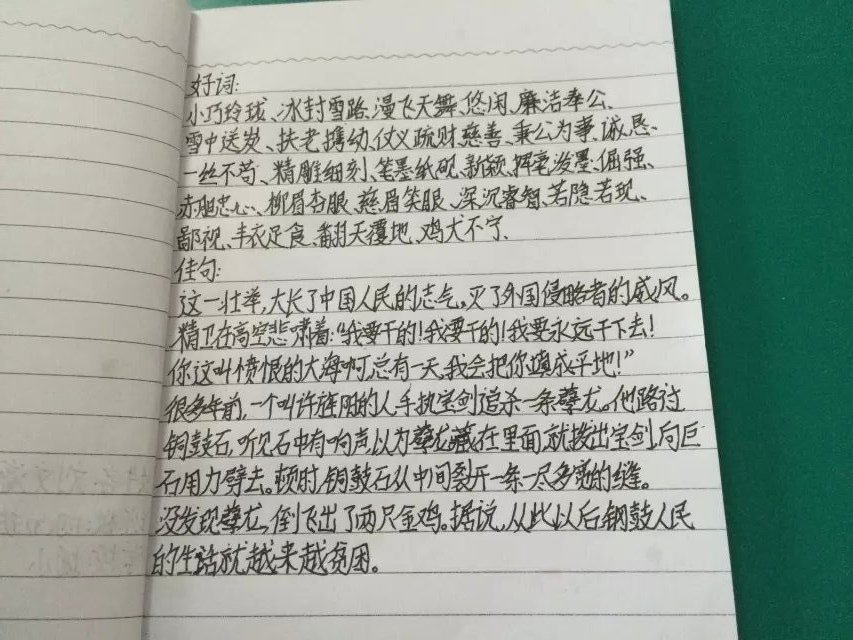 好词:
小巧玲珑、冰封雪路、漫飞天舞、悠闲、廉洁奉公、
雪中送炭、扶老携幼、仗义疏财、慈善、秉公为事、诚恳、
一丝不苟、精雕细刻、笔墨纸砚、新颖、挥毫泼墨、倔强、
赤胆忠心、柳眉杏眼、慈眉笑眼、深沉睿智、若隐若现、
鄙视、丰衣足食、翻天覆地、鸡犬不宁、
佳句:
这一壮举,大长了中国人民的志气,灭了外国侵略者的威风。
精卫在高空悲啸着:"我要干的!我要干的!我要永远干下去!
你这叫愤恨的大海啊,总有一天我会把你填成平地!"
很多年前,一个叫许旌阳的人手执宝剑追杀一条孽龙。他路过
铜鼓石,听见石中有响声,以为孽龙藏在里面,就拨出宝剑,向巨
石用力劈去。顿时,铜鼓石从中间裂开一条一尺多宽的缝。
没发现孽龙,倒飞出了两只金鸡。据说,从此以后铜鼓人民
的生活就越来越贫困。